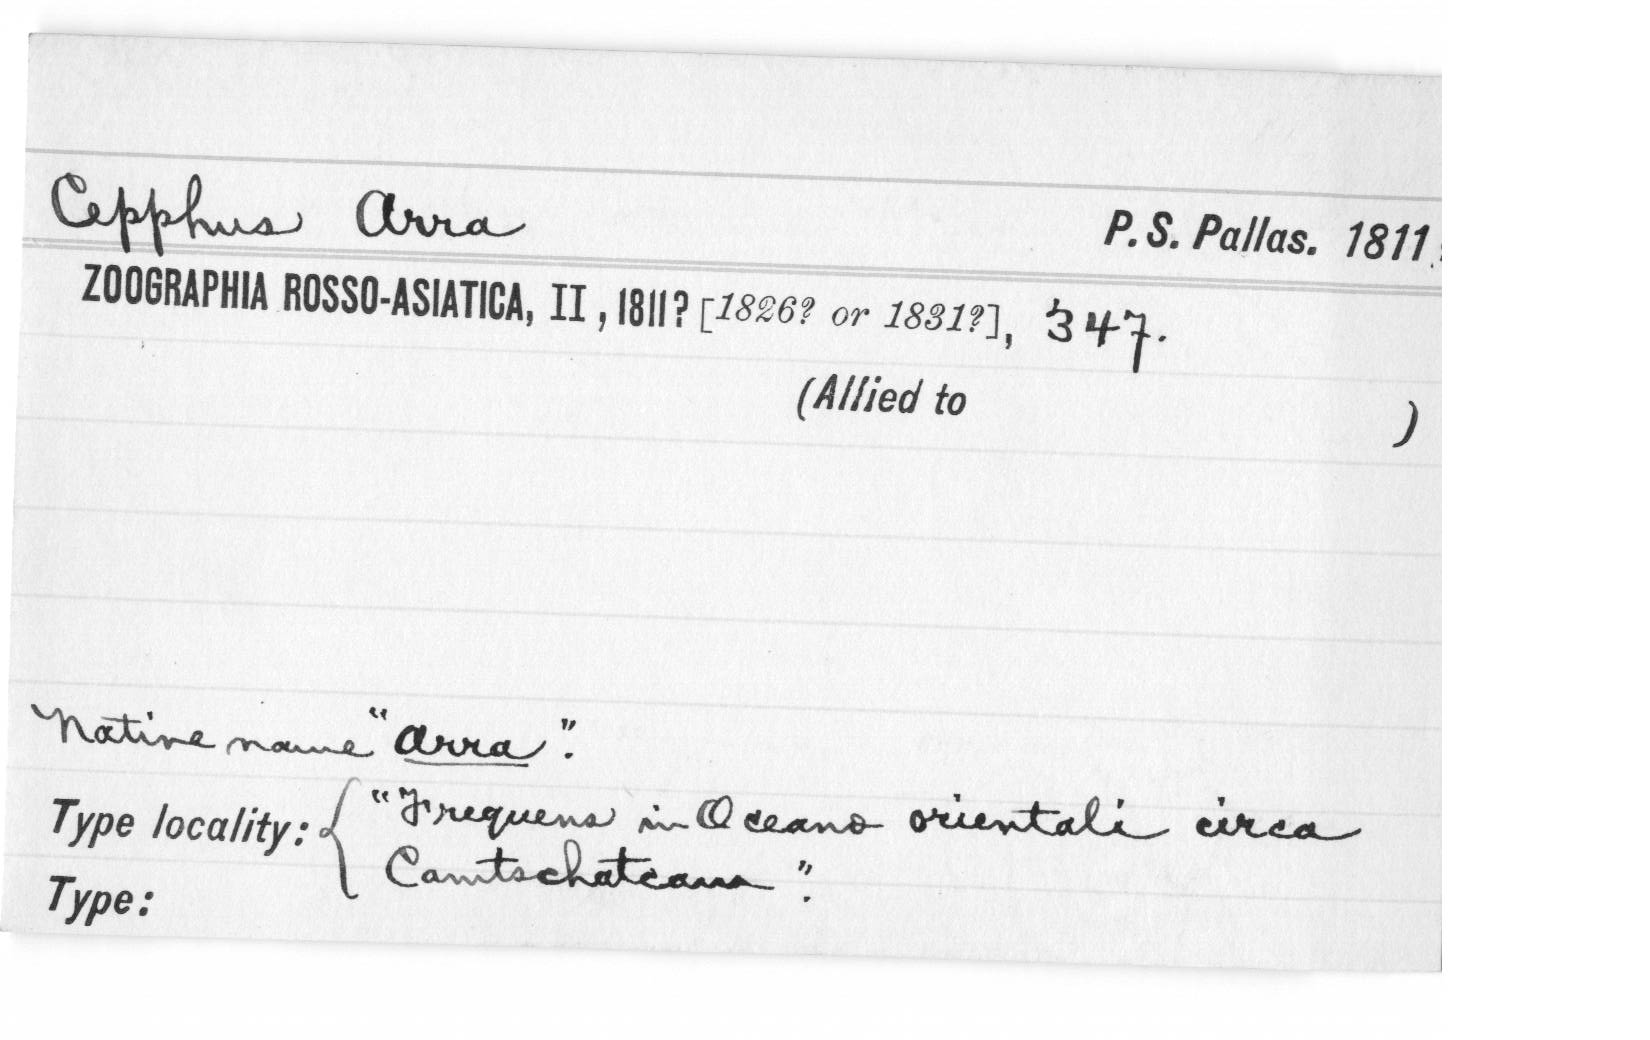 Cepphus Arra
P. S. Pallas. 1811
ZOOGRAPHIA ROSSO-ASIATICA, II, 1811? [1826? or 1831?], 347.
(Allied to )
Native name "arra".
Type locality: { "Frequens in Oceano orientali circa
Camtschatcam".
Type: